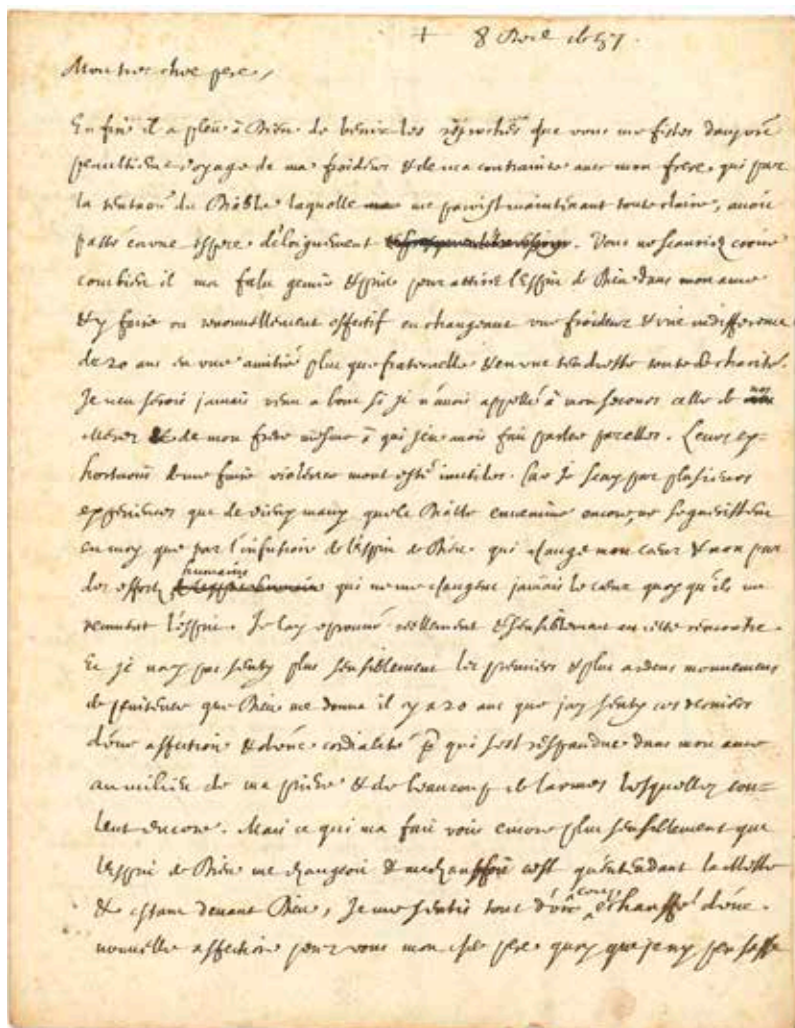 + 8 Avril 1657.
Mon tres cher pere,
Enfin il a pleu à Dieu de benir les reproches que vous me fistes dans vre
penultieme voyage de ma froideur & de ma contrainte avec mon frere, qui par
la tentaon du Diable laquelle me paroist maintenant toute claire, avoit
passé en une espece d'éloignement. Vous ne scauriez croire
combien il m'a falu gemir & prier pour attirer l'Esprit de Dieu dans mon ame
& y faire un renouvellement effectif en changeant une froideur & une indifference
de 20 ans en une amitié plus que fraternelle & en une tendresse toute de charité.
Je n'en serois jamais venu a bout si je n'avois appellé à mon secours celles de nos
Meres & de mon frere mesme à qui j'en avois fait parler par elles. Leurs ex=
hortaons & une sainte violence m'ont esté inutiles. Car je scay par plusieurs
experiences que de vieux maux que le Diable envenime encore, ne se guerissent
en moy que par l'infusion de l'Esprit de Dieu qui change mon cœur & non par
des efforts humains qui ne me changent jamais le cœur quoy qu'ils me
remuent l'esprit. Je l'ay eprouvé reellement & sensiblement en cette rencontre.
Et je n'ay pas senty plus sensiblement les premiers & plus ardens mouvemens
de penitence que Dieu me donna il y a 20 ans que j'ay senty ces derniers
d'une affection & d'une cordialité qui s'est respandue dans mon ame
au milieu de ma priere & de beaucoup de larmes lesquelles cou=
lent encore. Mais ce qui m'a fait voir encore plus sensiblement que
l'Esprit de Dieu me changeoit & m'echauffoit c'est qu'entendant la Messe
& estant devant Dieu, Je me sentis tout d'un coup echauffé d'une
nouvelle affection pour vous mon cher pere quoy que je n'y pensasse